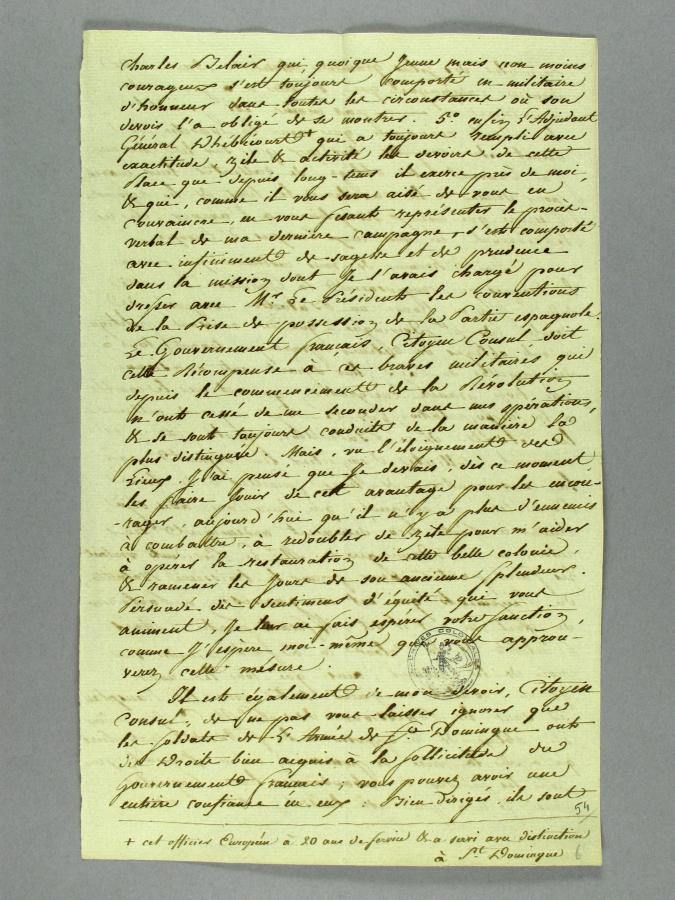 Charles Belair qui, quoique Jeune mais non moins
courageux s'est toujours comporté en militaire
d'honneur dans toutes les circonstances où son
devoir l'a obligé de se montrer. 5º enfin l'Adjudant
Général D'hébécourt + que a toujours rempli avec
exactitude, zèle & activité les devoirs de cette
Place que depuis long-tems il exerce près de moi,
& qui, comme il vous sera aisé de vous en
convaincre, en vous fesant représenter le procès-
verbal de ma dernière campagne, s'est comporté
avec infiniment de sagesse et de prudence
dans la mission dont Je l'avais chargé pour
dresser avec Mr. Le Président les conventions
de la Prise de possession de la Partie espagnole.
Le Gouvernement français, Citoyen Consul, doit
cette Récompense à ces braves militaires qui
depuis le commencement de la Révolution
n'ont cessé de me seconder dans mes opérations,
& se sont toujours conduits de la manière la
plus distinguée. Mais, vu l'éloignement des
Lieux, J'ai pensé que Je devais, dès ce moment
les faire Jouir de cet avantage pour les encou-
-rager, aujourd'hui qu'il n'y a plus d'ennemis
à combattre, à redoubler de zèle pour m'aider
à opérer la restauration de cette belle colonie,
& ramener les Jours de son ancienne splendeur.
Persuadé des sentimens d'équité qui vous
animent, Je leur ai fais espérer votre sanction
comme J'espère moi-même que vous approu-
verez cette mesure.
Il est également de mon devoir, Citoyen
Consul, de ne pas vous laisser ignorer que
les soldats de l'Armée de St. Domingue ont
des Droits bien acquis à la sollicitude du
Gouvernement français; vous pouvez avoir une
entière confiance en eux. Bien dirigés, ils sont
54
+ cet officier Européen a 20 ans de service & a servi avec distinction
à St. Domingue 6